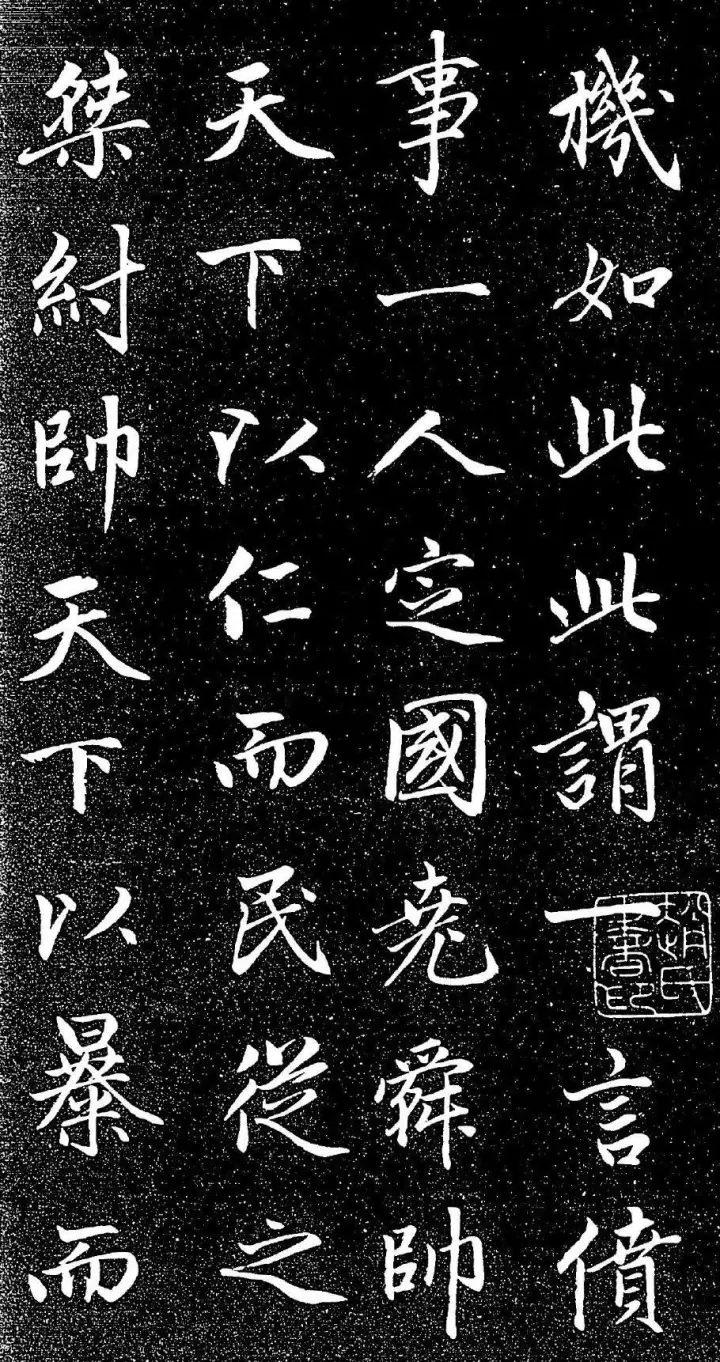 機如此此謂一言僨
事一人定國堯舜帥
天下以仁而民從之
桀紂帥天下以暴而
趙氏書印